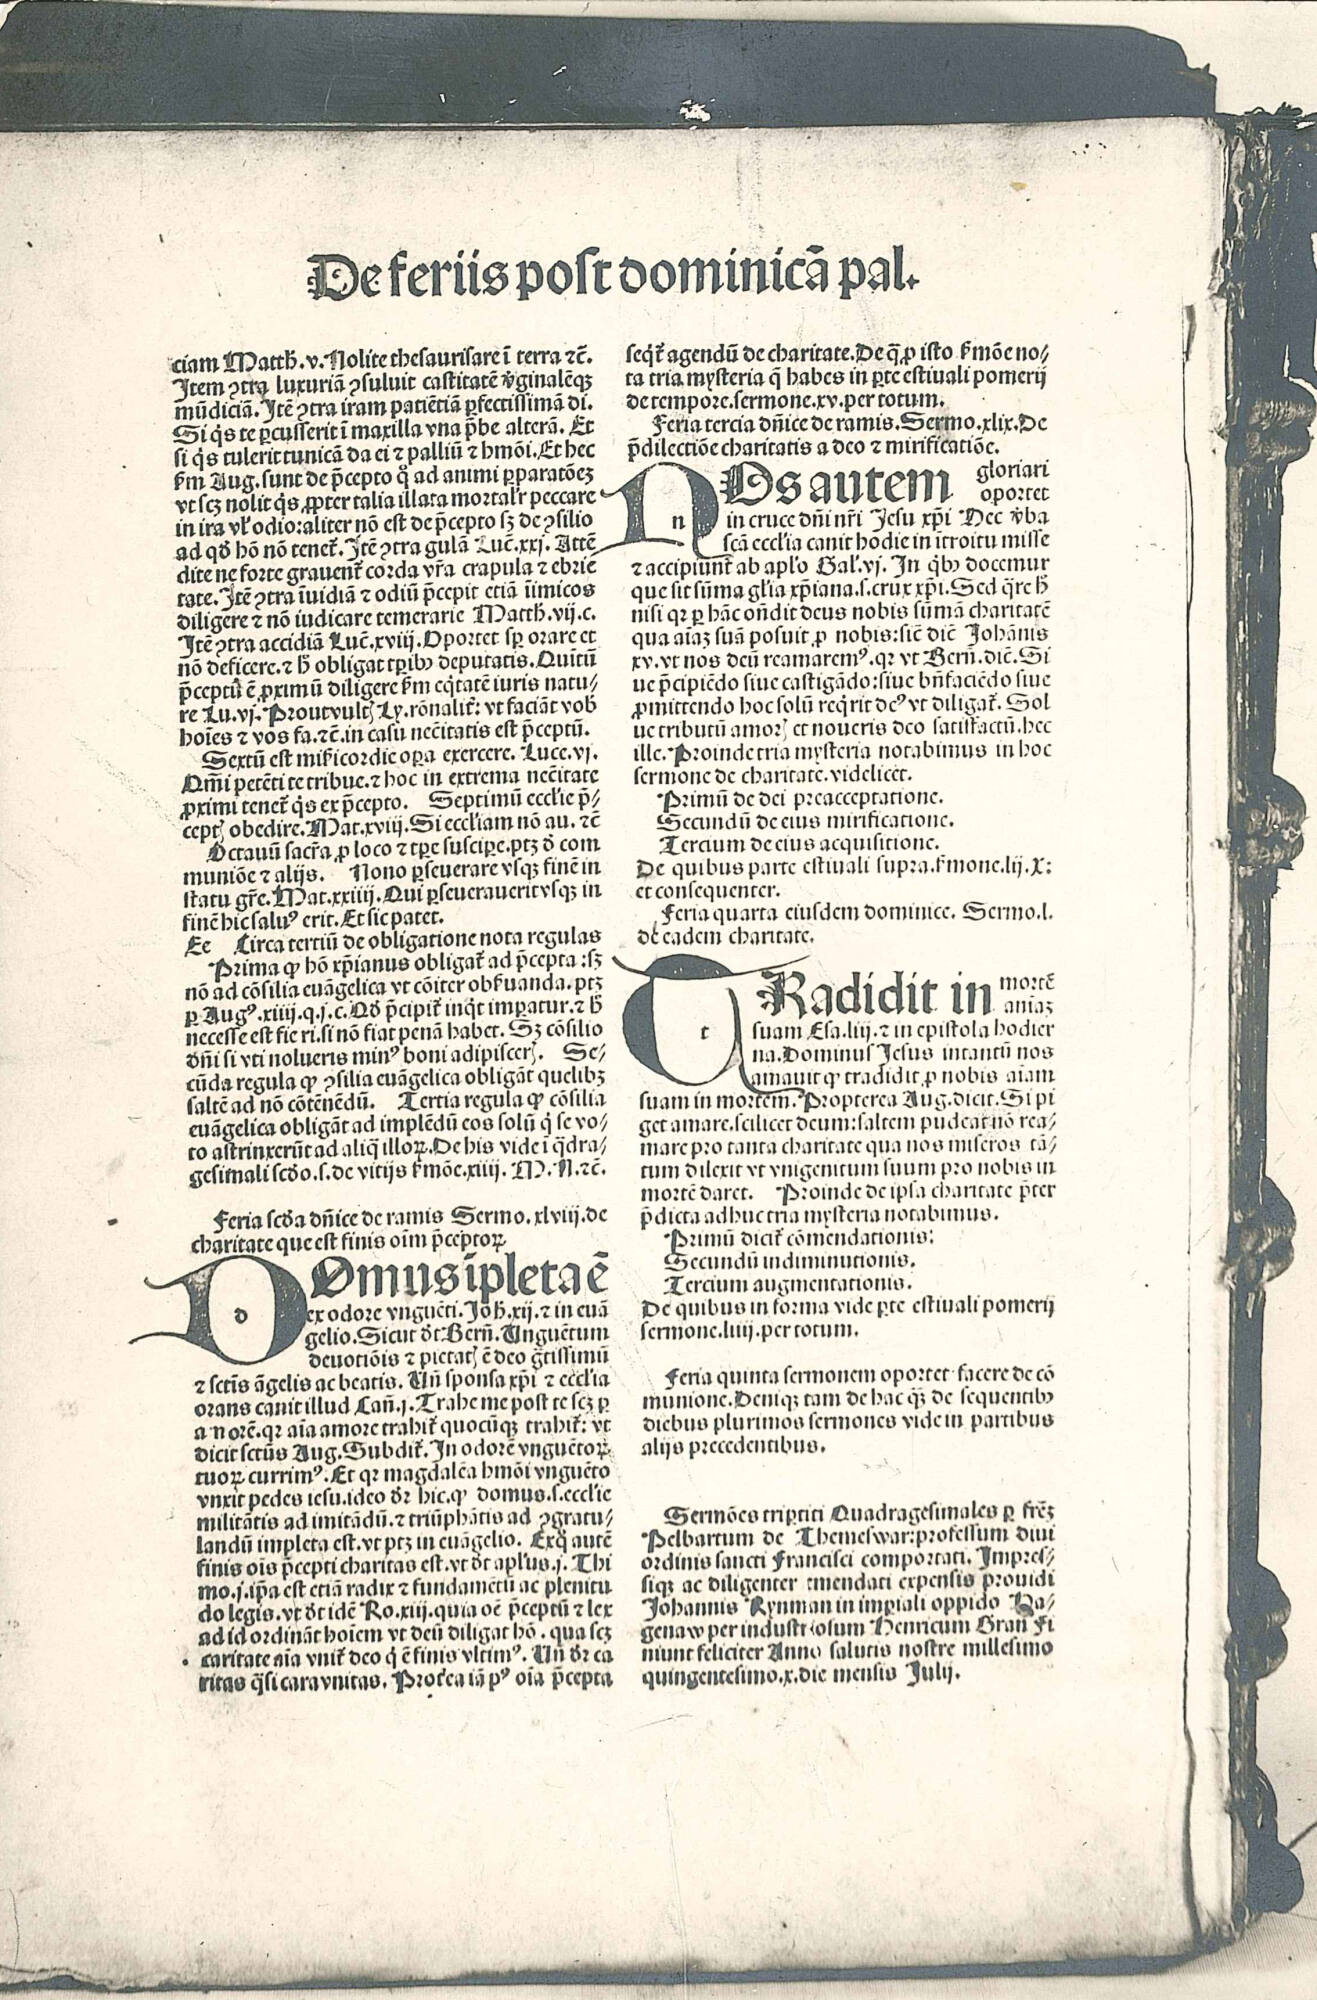 De feriis post dominicā pal.
ciam Matth̄.v. Nolite thesaurisare ī terra ⁊c̄.
Item ꝯtra luxuriā ꝯsuluit castitatē v̄ginalēqꝫ
mūdiciā. Itē ꝯtra iram patiētiā ꝑfectissimā di.
Si q̇s te ꝑcusserit ī maxilla vna p̄be alterā. Et
si q̇s tulerit tunicā da ei ⁊ palliū ⁊ hmōi. Et hec
fm Aug. sunt de p̄cepto qͦ ad animi p̱paratōeꝫ
vt scꝫ nolit q̇s ꝓpter talia illata mortalr̄ peccare
in ira vl̓ odio: aliter nō est de p̄cepto sꝫ de ꝯsilio
ad qd̄ hō nō tenet᷑. Itē ꝯtra gulā Luc̄.xxj. Attē
dite ne forte grauent᷑ corda vr̄a crapula ⁊ ebrie
tate. Itē ꝯtra īuidiā ⁊ odiū p̄cepit etiā īimicos
diligere ⁊ nō iudicare temerarie Matth̄.vij.c.
Itē ꝯtra accidiā Luc̄.xviij. Oportet sp̄ orare et
nō deficere. ⁊ h̄ obligat tꝑibꝰ deputatis. Quītū
p̄ceptū ē ꝓximū diligere fm eq̇tatē iuris natu/
re Lu.vj. Prout vultꝭ Ly. rōnalit᷑: vt faciāt vob̄
hoīes ⁊ vos fa. ⁊c̄. in casu nec̄itatis est p̄ceptū.
Sextū est mīs̄icordie oꝑa exercere. Luce.vj.
Om̄i petēti te tribue. ⁊ hoc in extrema nec̄itate
ꝓximi tenet᷑ q̇s ex p̄cepto. Septimū eccl̄ie p̄/
ceptꝭ obedire. Mat.xviij. Si eccl̄iam nō au. ⁊c̄
Octauū sacr̄a ꝓ loco ⁊ tꝑe suscipe. ptꝫ d̄ com
muniōe ⁊ alijs. Nono ꝑseuerare vsqꝫ finē in
statu gr̄e. Mat.xxiiij. Qui ꝑseuerauerit vsqꝫ in
finē hic saluꝰ erit. Et sic patet.
Ee Circa tertiū de obligatione nota regulas
Prima ꝙ hō xp̄ianus obligat᷑ ad p̄cepta: sꝫ
nō ad cōsilia euāgelica vt cōiter obs̄uanda. ptꝫ
ꝑ Augꝰ.xiiij.q.j.c. Qd̄ p̄cipit᷑ inq̇t imꝑatur. ⁊ h̄
necesse est fieri. si nō fiat penā habet. Sꝫ cōsilio
dn̄i si vti nolueris minꝰ boni adipiscerꝭ. Se/
cūda regula ꝙ ꝯsilia euāgelica obligāt quēlibꝫ
saltē ad nō cōtēnēdū. Tertia regula ꝙ cōsilia
euāgelica obligāt ad implēdū eos solū q̇ se vo/
to astrinxerūt ad aliq̇ illoꝝ. De his vide ī q̇dra/
gesimali scd̄o.s. de vitijs s̄mōe.xiiij. M. N. ⁊c̄.
Feria scd̄a dn̄ice de ramis Sermo.xlviij. de
charitate que est finis oīm p̄ceptoꝝ
d Domus īpleta ē
ex odore vnguēti. Joh̄.xij. ⁊ in euā
gelio. Sicut d̄t Bern̄. Unguētum
deuotiōis ⁊ pietatꝭ ē deo gr̄tissimū
⁊ sctīs āgelis ac beatis. Un̄ sponsa xp̄i ⁊ eccl̄ia
orans canit illud Can̄.j. Trahe me post te scꝫ ꝑ
a norē. qr aīa amore trahit᷑ quocūqꝫ trahit᷑: vt
dicit sctūs Aug. Subdit᷑. In odorē vnguētoꝝ
tuoꝝ currimꝰ. Et qr magdalēa hmōi vnguēto
vnxit pedes iesu. ideo d̄r hic. ꝙ domus.s. eccl̄ie
militātis ad imitādū. ⁊ triūphātis ad ꝯgratu/
landū impleta est. vt ptꝫ in euāgelio. Exq̇ autē
finis oīs p̄cepti charitas est. vt d̄t apl̄us.j. Thi
mo.j. ip̄a est etiā radix ⁊ fundamētū ac plenitu
do legis. vt d̄t idē Ro.xiij. quia oē p̄ceptū ⁊ lex
ad id ordināt hoīem vt deū diligat hō. qua scꝫ
caritate aīa vnit᷑ deo q̇ ē finis vltimꝰ. Un̄ d̄r ca
ritas q̄si cara vnitas. Prot᷑ea iā pꝰ oīa p̄cepta
seqt᷑ agendū de charitate. De q̄ ꝓ isto s̄mōe no/
ta tria mysteria q̄ habes in ꝑte estiuali pomerij
de tempore. sermone.xv. per totum.
Feria tercia dn̄ice de ramis. Sermo.xlix. De
p̄dilectiōe charitatis a deo ⁊ mirificatiōe.
n Nos autem gloriari
oportet
in cruce dn̄i nr̄i Jesu xp̄i Hec v̄ba
scā eccl̄ia canit hodie in ītroitu misse
⁊ accipiunt᷑ ab apl̓o Gal̓.vj. In q̇bꝰ docemur
que sit sūma gl̓ia xp̄iana.s. crux xp̄i. Sed q̄re h̄
nisi qr ꝑ hāc on̄dit deus nobis sūmā charitatē
qua aīaꝫ suā posuit ꝓ nobis: sic̄ dic̄ Johānis
xv. vt nos deū reamaremꝰ. qr vt Bern̄. dic̄. Si
ue p̄cipiēdo siue castigādo: siue bn̄faciēdo siue
ꝓmittendo hoc solū reqrit deꝰ vt diligat᷑. Sol
ue tributū amorꝭ et noueris deo satisfactū. hec
ille. Proinde tria mysteria notabimus in hoc
sermone de charitate. videlicet.
Primū de dei preacceptatione.
Secundū de eius mirificatione.
Tercium de eius acquisitione.
De quibus parte estiuali supra. s̄mone.lij. X:
et consequenter.
Feria quarta eiusdem dominice. Sermo.l.
de eadem charitate.
t Tradidit in mortē
aniaꝫ
suam Esa.liij. ⁊ in epistola hodier
na. Dominus Jesus intantū nos
amauit ꝙ tradidit ꝓ nobis aīam
suam in mortem. Propterea Aug. dicit. Si pi
get amare. scilicet deum: saltem pudeat nō rea/
mare pro tanta charitate qua nos miseros tā/
tum dilexit vt vnigenitum suum pro nobis in
mortē daret. Proinde de ipsa charitate p̄ter
p̄dicta adhuc tria mysteria notabimus.
Primū dicit᷑ cōmendationis:
Secundū indiminutionis.
Tercium augmentationis.
De quibus in forma vide ꝑte estiuali pomerij
sermone.liiij. per totum.
Feria quinta sermonem oportet facere de cō
munione. Deniqꝫ tam de hac q̄ꝫ de sequentibꝰ
diebus plurimos sermones vide in partibus
alijs precedentibus.
Sermōes triꝑtiti Quadragesimales ꝑ fr̄eꝫ
Pelbartum de Themeswar: professum diui
ordinis sancti Francisci comportati. Impres/
siqꝫ ac diligenter emendati expensis prouidi
Johannis Rynman in imꝑiali oppido Ha/
genaw per industriosum Henricum Gran Fi
niunt feliciter Anno salutis nostre millesimo
quingentesimo.x. die mensis Julij.